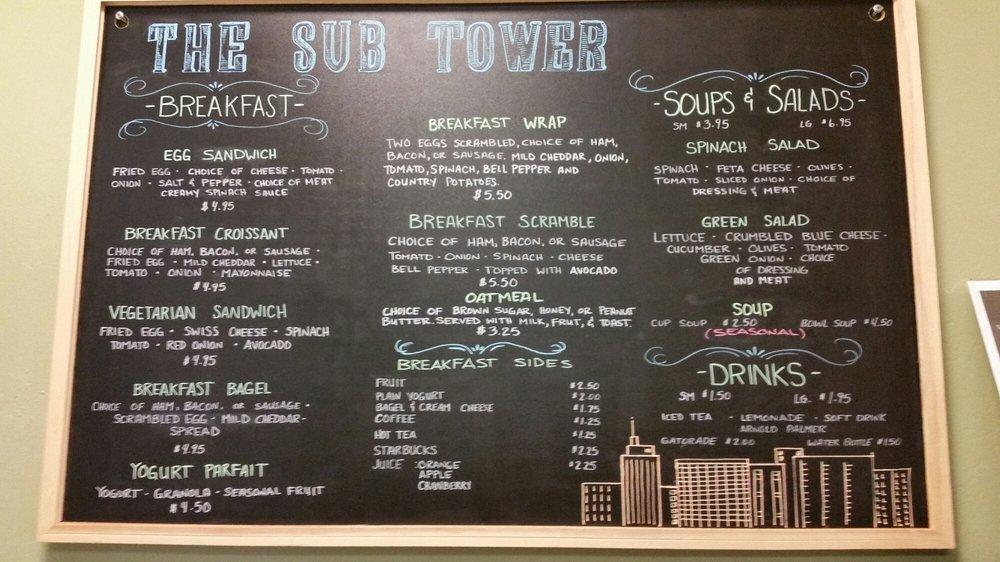 THE SUB TOWER
-BREAKFAST-
EGG SANDWICH
FRIED EGG · CHOICE OF CHEESE · TOMATO ·
ONION · SALT & PEPPER · CHOICE OF MEAT
CREAMY SPINACH SAUCE
$4.95
BREAKFAST CROISSANT
CHOICE OF HAM, BACON, OR SAUSAGE
FRIED EGG · MILD CHEDDAR · LETTUCE ·
TOMATO · ONION · MAYONNAISE
$4.95
VEGETARIAN SANDWICH
FRIED EGG · SWISS CHEESE · SPINACH
TOMATO · RED ONION · AVOCADO
$4.95
BREAKFAST BAGEL
CHOICE OF HAM, BACON, OR SAUSAGE ·
SCRAMBLED EGG · MILD CHEDDAR ·
SPREAD
$4.95
YOGURT PARFAIT
YOGURT - GRANOLA - SEASONAL FRUIT
$4.50
BREAKFAST WRAP
TWO EGGS SCRAMBLED, CHOICE OF HAM,
BACON, OR SAUSAGE. MILD CHEDDAR, ONION,
TOMATO, SPINACH, BELL PEPPER AND
COUNTRY POTATOES.
$5.50
BREAKFAST SCRAMBLE
CHOICE OF HAM, BACON, OR SAUSAGE
TOMATO · ONION · SPINACH · CHEESE
BELL PEPPER · TOPPED WITH AVOCADO
$5.50
OATMEAL
CHOICE OF BROWN SUGAR, HONEY, OR PEANUT
BUTTER. SERVED WITH MILK, FRUIT, & TOAST.
$3.25
BREAKFAST SIDES
FRUIT $2.50
PLAIN YOGURT $2.00
BAGEL & CREAM CHEESE $1.75
COFFEE $1.25
HOT TEA $1.25
STARBUCKS $2.25
JUICE :ORANGE $2.25
APPLE
CRANBERRY
-SOUPS & SALADS-
SM $3.95 LG $6.95
SPINACH SALAD
SPINACH · FETA CHEESE · OLIVES ·
TOMATO · SLICED ONION · CHOICE OF
DRESSING & MEAT
GREEN SALAD
LETTUCE · CRUMBLED BLUE CHEESE ·
CUCUMBER · OLIVES · TOMATO
GREEN ONION · CHOICE
OF DRESSING
AND MEAT
SOUP
CUP SOUP $2.50 BOWL SOUP $4.50
(SEASONAL)
-DRINKS-
SM $1.50 LG. $1.95
ICED TEA - LEMONADE - SOFT DRINK
ARNOLD PALMER
GATORADE $2.00 WATER BOTTLE $1.50